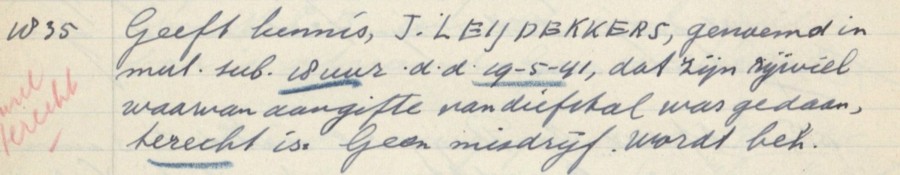 1835 Geeft kennis, J. LEIJDEKKERS, genoemd in
mut. sub. 18 uur d.d. 19-5-41, dat zijn rijwiel
waarvan aangifte van diefstal was gedaan,
terecht is. Geen misdrijf. Wordt bek.
terecht